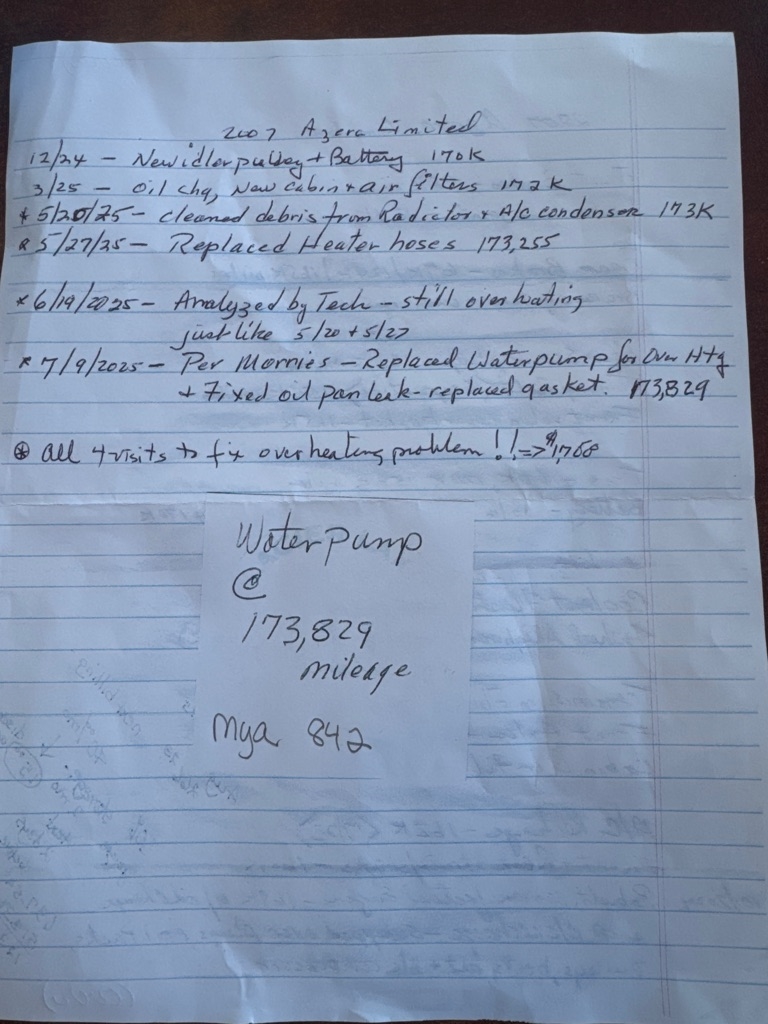 2007 Azera Limited
12/24 - New idler pulley + Battery 170K
3/25 - oil chg, New cabin + air filters 172K
* 5/20/25 - cleaned debris from Radiator + A/c condenser 173K
* 5/27/25 - Replaced Heater hoses 173,255
* 6/19/2025 - Analyzed by Tech - still overheating
just like 5/20 + 5/27
* 7/9/2025 - Per Morries - Replaced Waterpump for Over Htg
+ Fixed oil pan leak - replaced gasket. 173,829
⊛ all 4 visits to fix overheating problem !! => $1,768
Water Pump
@
173,829
mileage
Mya 842